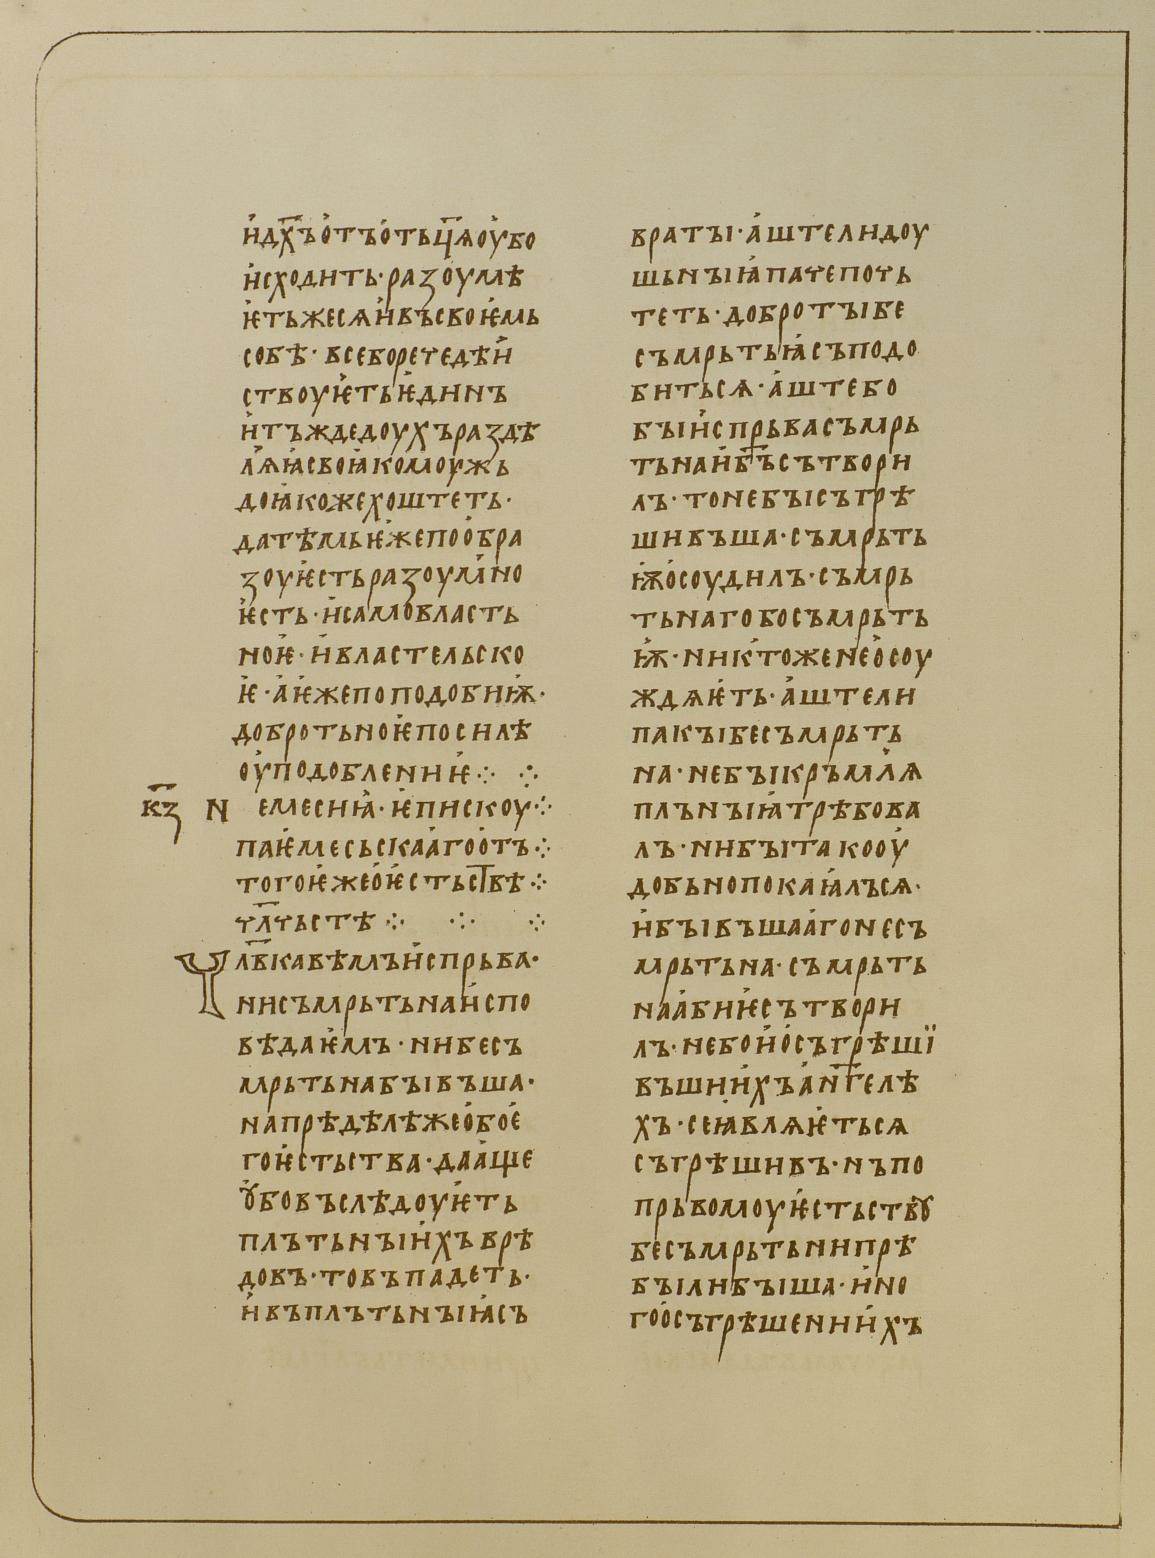 и҆дх҃ъо҆тъо҆тьц҃ѧоу҆бо
и҆сходить·разоумѣ
ѥ҆тьжесѧи҆въсвоѥ҆мь
собѣ·всеборечедѣи҆
ствоуѥ҆тьѥ҆динъ
и҆тъждедоухъраздѣ
лѧꙗ҆своꙗ҆комоужь
доꙗ҆кожехоштеть·
датѣмьѥ҆жепоо҆бра
зоуѥ҆стьразоумно
ѥ҆сть·и҆самовласть
ноѥ҆·и҆властельско
ѥ҆·а҆ѥ҆жепоподобиѭ·
добротьноѥ҆посилѣ
оу҆подоблениѥ҆⁘ ⁘
к҃з Немесиꙗ҆·ѥ҆пискоу⁘
паѥ҆месьскаа҆гоо҆тъ⁘
тогоѥ҆жео҆ѥ҆стьст҃вѣ⁘
чл҃чьстѣ⁘ ⁘ ⁘
Чл҃вкавѣмъи҆спрьва·
нисъмрьтьнаи҆спо
вѣдаѥ҆мъ·нибесъ
мрьтьнабывъша·
напрѣдѣлѣжео҆бое҆
гоѥ҆стьства·даа҆ще
ꙋ҆бовъслѣдоуѥ҆ть
плътьныи҆хъврѣ
довъ·товъпадеть·
и҆въплътьныꙗ҆съ
враты·а҆штелидоу
шьныꙗ҆пачепочь
теть·добротыбе
съмрьтьꙗ҆съподо
битьсѧ·а҆штебо
быи҆спрьвасъмрь
тьнаи҆б҃ъсътвори
лъ·тонебысъгрѣ
шивъша·съмрьть
ѭ҆о҆соудилъ·съмрь
тьнагобосъмрьть
ѭ҆·никтоженео҆соу
ждѧѥ҆ть·а҆штели
пакыбесъмрьть
на·небыкръмлѧ
плъныꙗ҆трѣбова
лъ·нибытакооу҆
добьнопокаꙗ҆лъсѧ·
и҆бывъшаа҆гонесъ
мрьтьна·съмрьть
наа҆биѥ҆сътвори
лъ·небои҆о҆съгрѣшї
въшии҆хъа҆н҃гелѣ
хъ·сеꙗ҆влѧѥ҆тьсѧ
съгрѣшивъ·нъпо
прьвомоуѥ҆стьствꙋ
бесъмрьтьнипрѣ
былибыша·и҆но
гоо҆съгрѣшении҆хъ